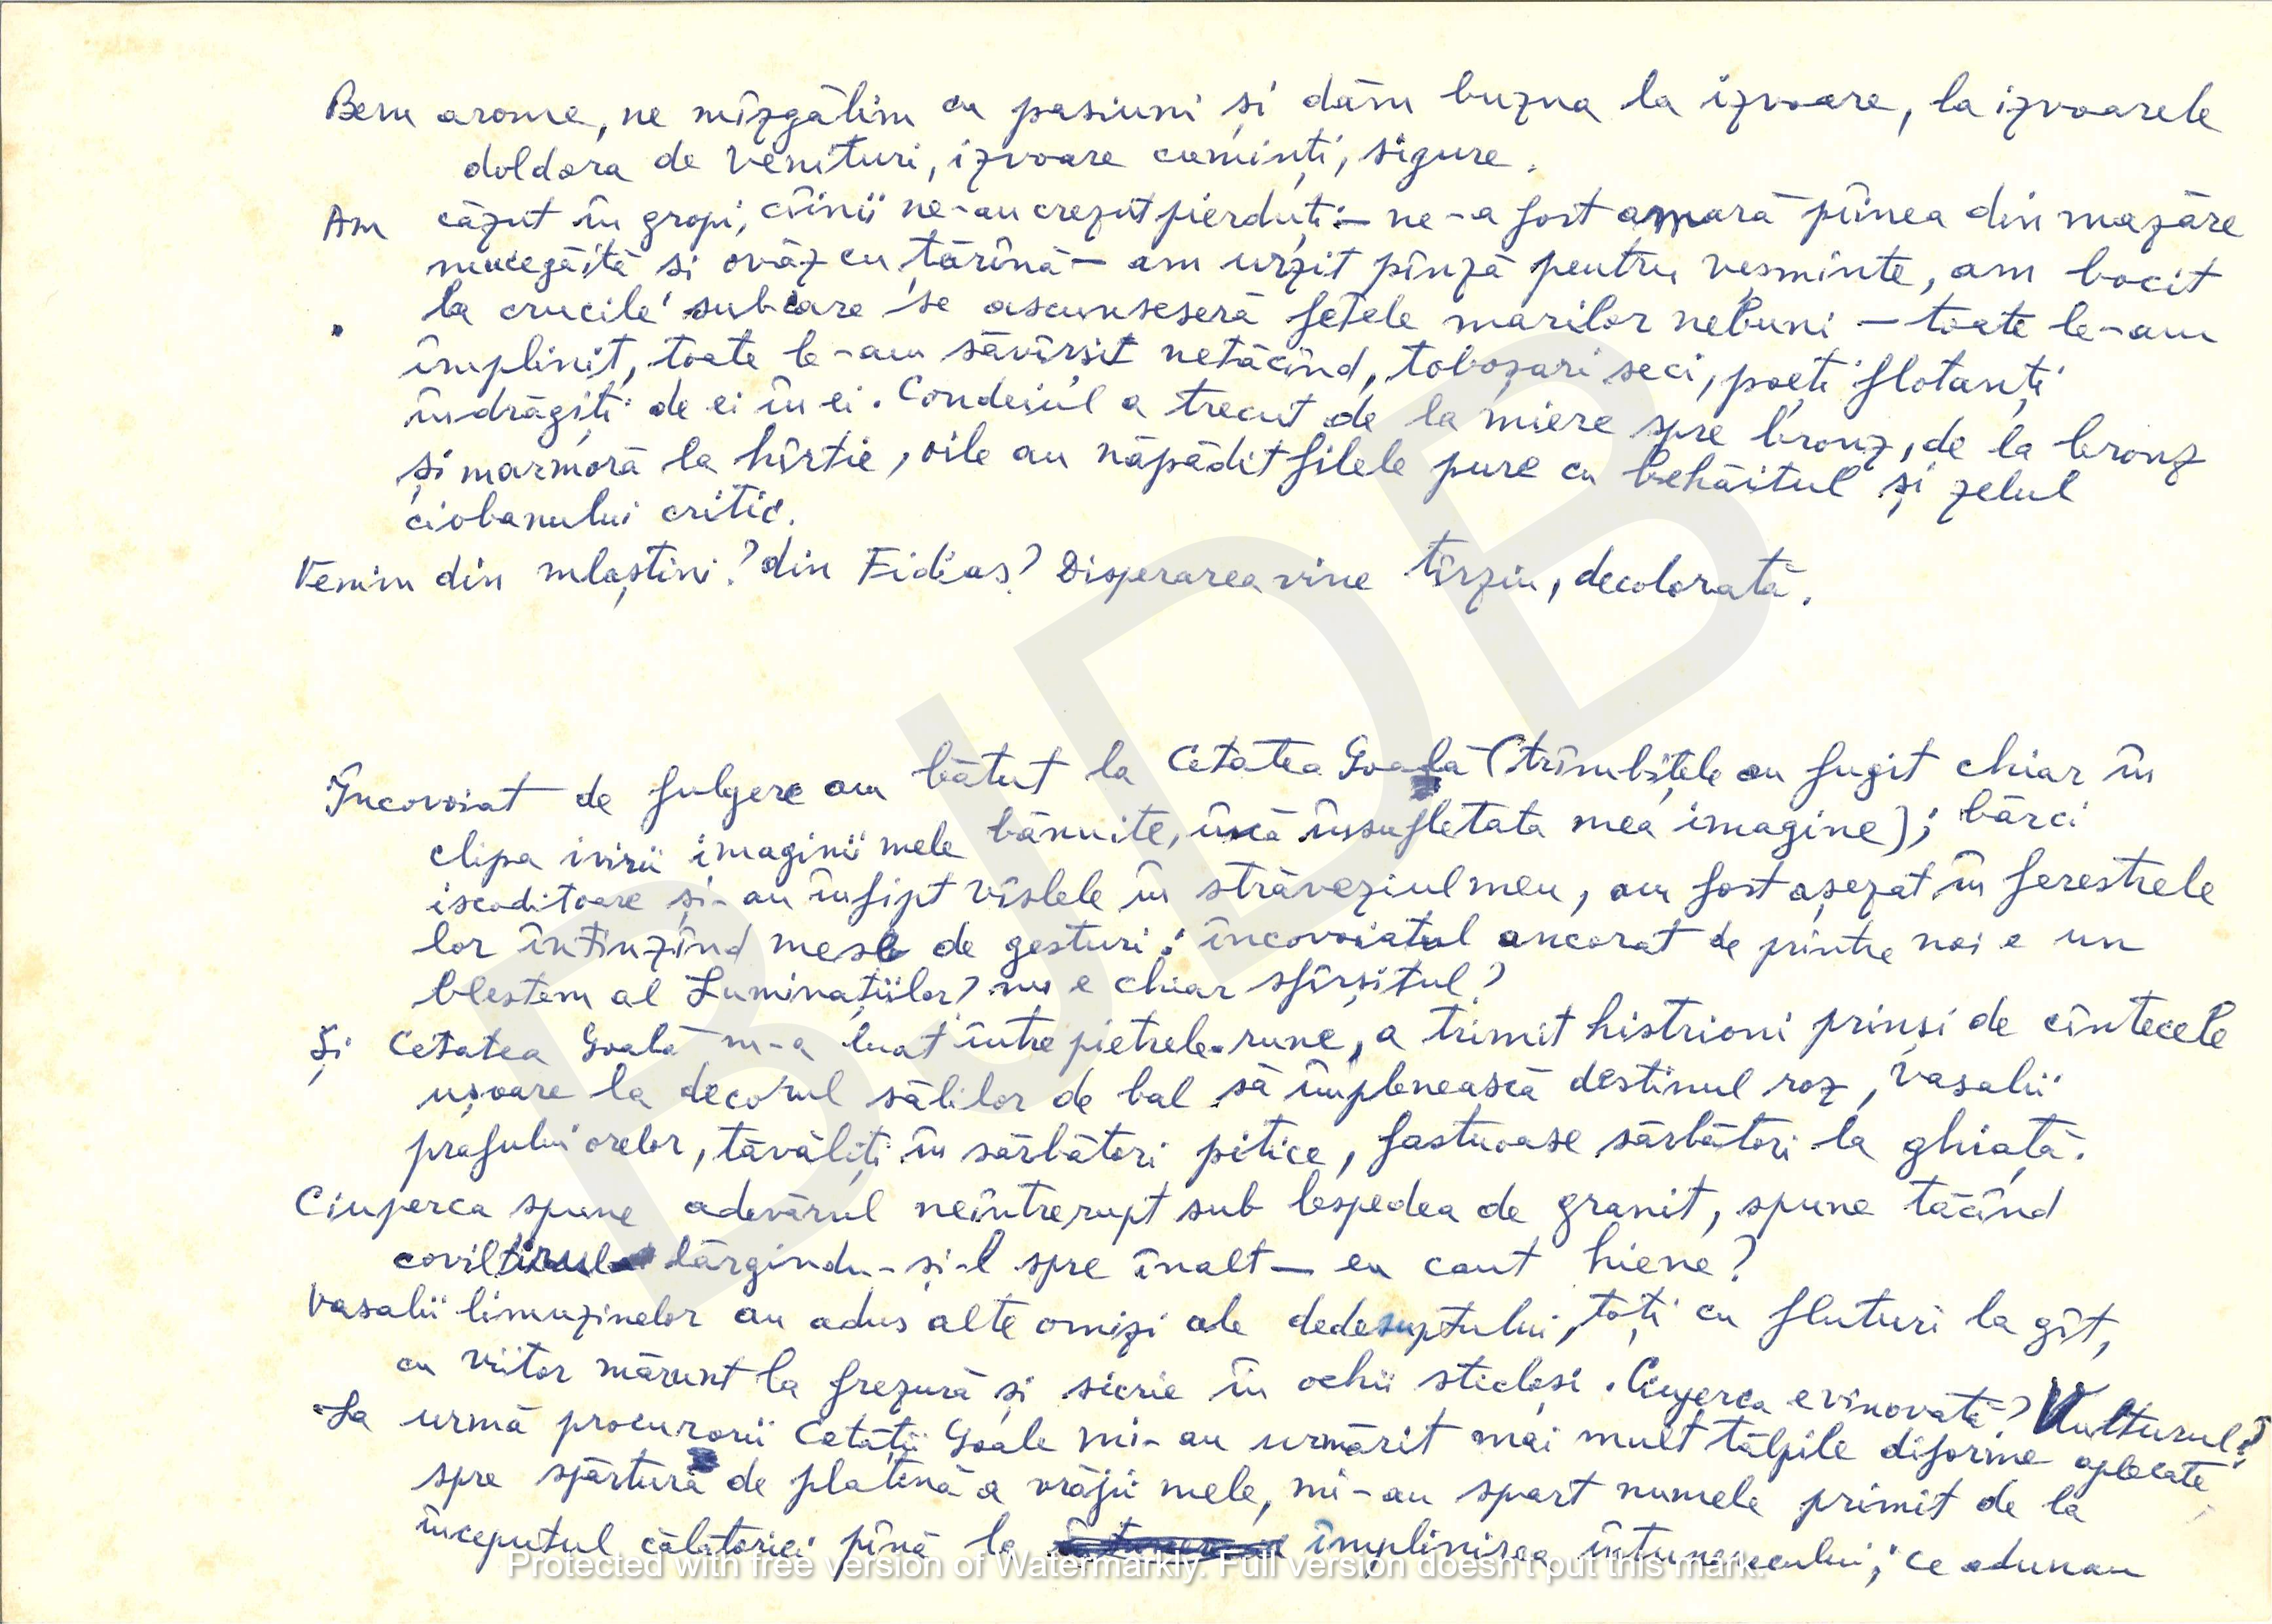 Bem arome, ne mîzgălim cu pasiuni și dăm buzna la izvoare, la izvoarele
doldora de venituri, izvoare cuminți, sigure.
Am căzut în gropi, cîinii ne-au crezut pierduți – ne-a fost amară pîinea din mazăre
mucegăită si ovăz cu țărînă – am urzit pînză pentru veșminte, am bocit
la crucile sub care se ascunseseră fețele marilor nebuni – toate le-am
împlinit, toate le-am săvîrsit netăcînd, toboșari seci, poeți flotanți
îndrăgiți de ei în ei. Condeiul a trecut de la miere spre bronz, de la bronz
și marmoră la hîrtie, oile au năpădit filele pure cu behăitul și zelul
ciobanului critic.
Venim din mlaștini? din Fidias? Disperarea vine tîrziu, decolorată.
Încovoiat de fulgere am bătut la Cetatea Goală (trîmbițele au fugit chiar în
clipa ivirii imaginii mele bănuite, încă însufletata mea imagine); bărci
iscoditoare și-au înfipt vîslele în străveziul meu, am fost așezat în ferestrele
lor întinzînd mese de gesturi: încovoiatul ancorat de printre noi e un
blestem al Luminațiilor? nu e chiar sfîrșitul?
Și Cetatea Goală m-a luat între pietrele-rune, a trimit histrioni prinși de cîntecele
ușoare la decorul sălilor de bal să împlenească destinul roz, vasalii
prafului orelor, tăvăliți în sărbători pitice, fastuoase sărbători la ghiață.
Ciuperca spune adevărul neîntrerupt sub lespedea de granit, spune tăcînd
coviltirul lărgindu-și-l spre înalt – eu caut hiene?
Vasalii limuzinelor au adus alte omizi ale dedesuptului, toți cu fluturi la gît,
cu viitor mărunt la frezură și sicrie în ochii sticloși. Ciuperca e vinovată? Vulturul?
La urmă procurorii Cetății Goale mi-au urmărit mai mult tălpile diforme aplecate
spre spărtura de platină a vrăjii mele, mi-au spart numele primit de la
începutul călătoriei pînă la împlinirea întunerecului; ce adunau
Protected with free version of Watermarkly. Full version doesn't put this mark.
BJDB